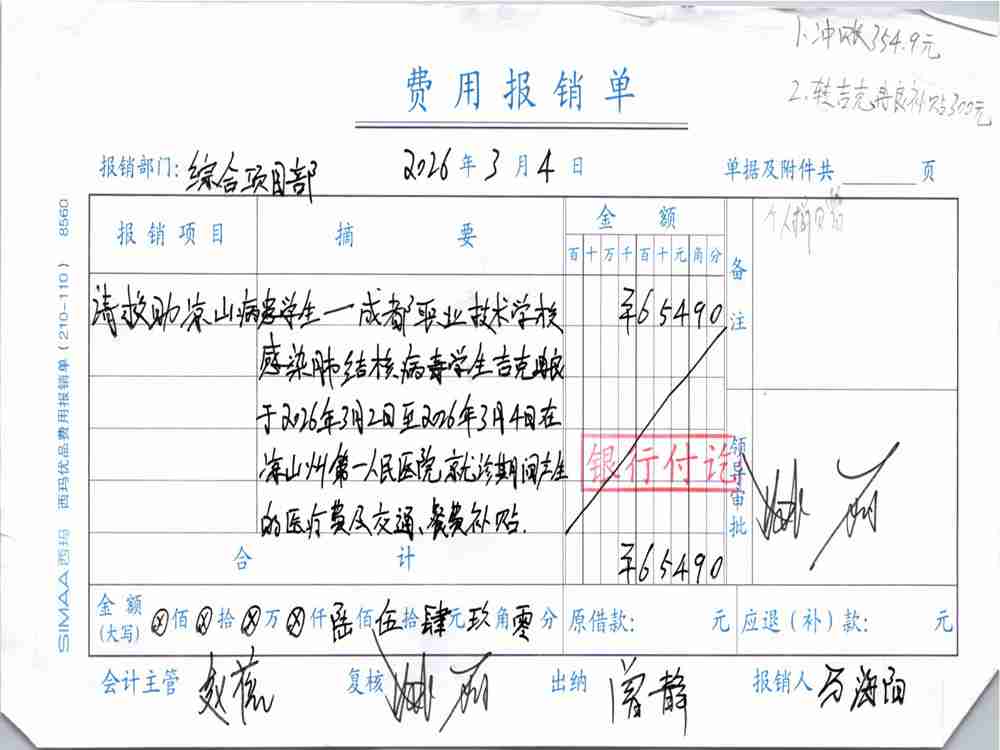 1.冲账354.9元
2.转吉克果良补贴300元
费用报销单
报销部门:综合项目部
2026年3月4日
单据及附件共 页
报销项目
摘要
金额
百十万千百十元角分
备注
请救助凉山病患学生一成都职业技术学校
¥65490
感染肺结核病毒学生吉克
于2026年3月2日至2026年3月4日在
凉山州第一人民医院就诊期间产生
的医疗费及交通、餐费补贴.
银行付讫
领导审批
合计
¥65490
金额(大写)ⓧ佰ⓧ拾ⓧ万ⓧ仟陆佰伍拾肆元玖角零分
原借款: 元
应退(补)款: 元
会计主管
复核
出纳 曾静
报销人 万海阳
SIMAA西玛 西玛优品费用报销单(210-110) 8560